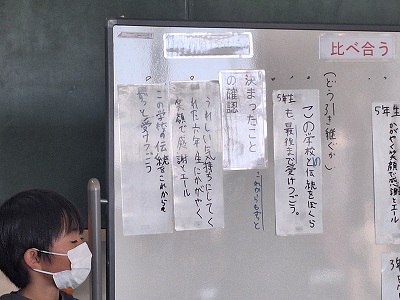 比べ合う
5年生
めざせ笑顔で感謝とエール
3年
(どう引き継ぐか)
この学校の伝統をぼくら
5年生も最後まで受けつごう。
これからもずっと
決まったこと
の確認
うれしい気持ちにしてく
れた六年生にかがやく
笑顔で感謝とエール
この学校の伝統をこれからも
ずっと受けつごう